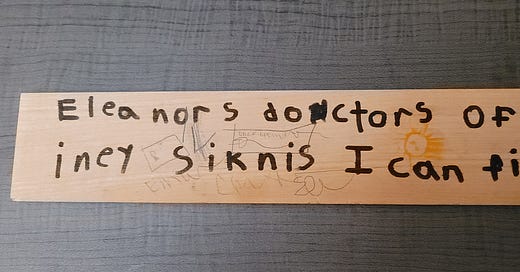 Eleanors doctors OF
iney Siknis I can fi